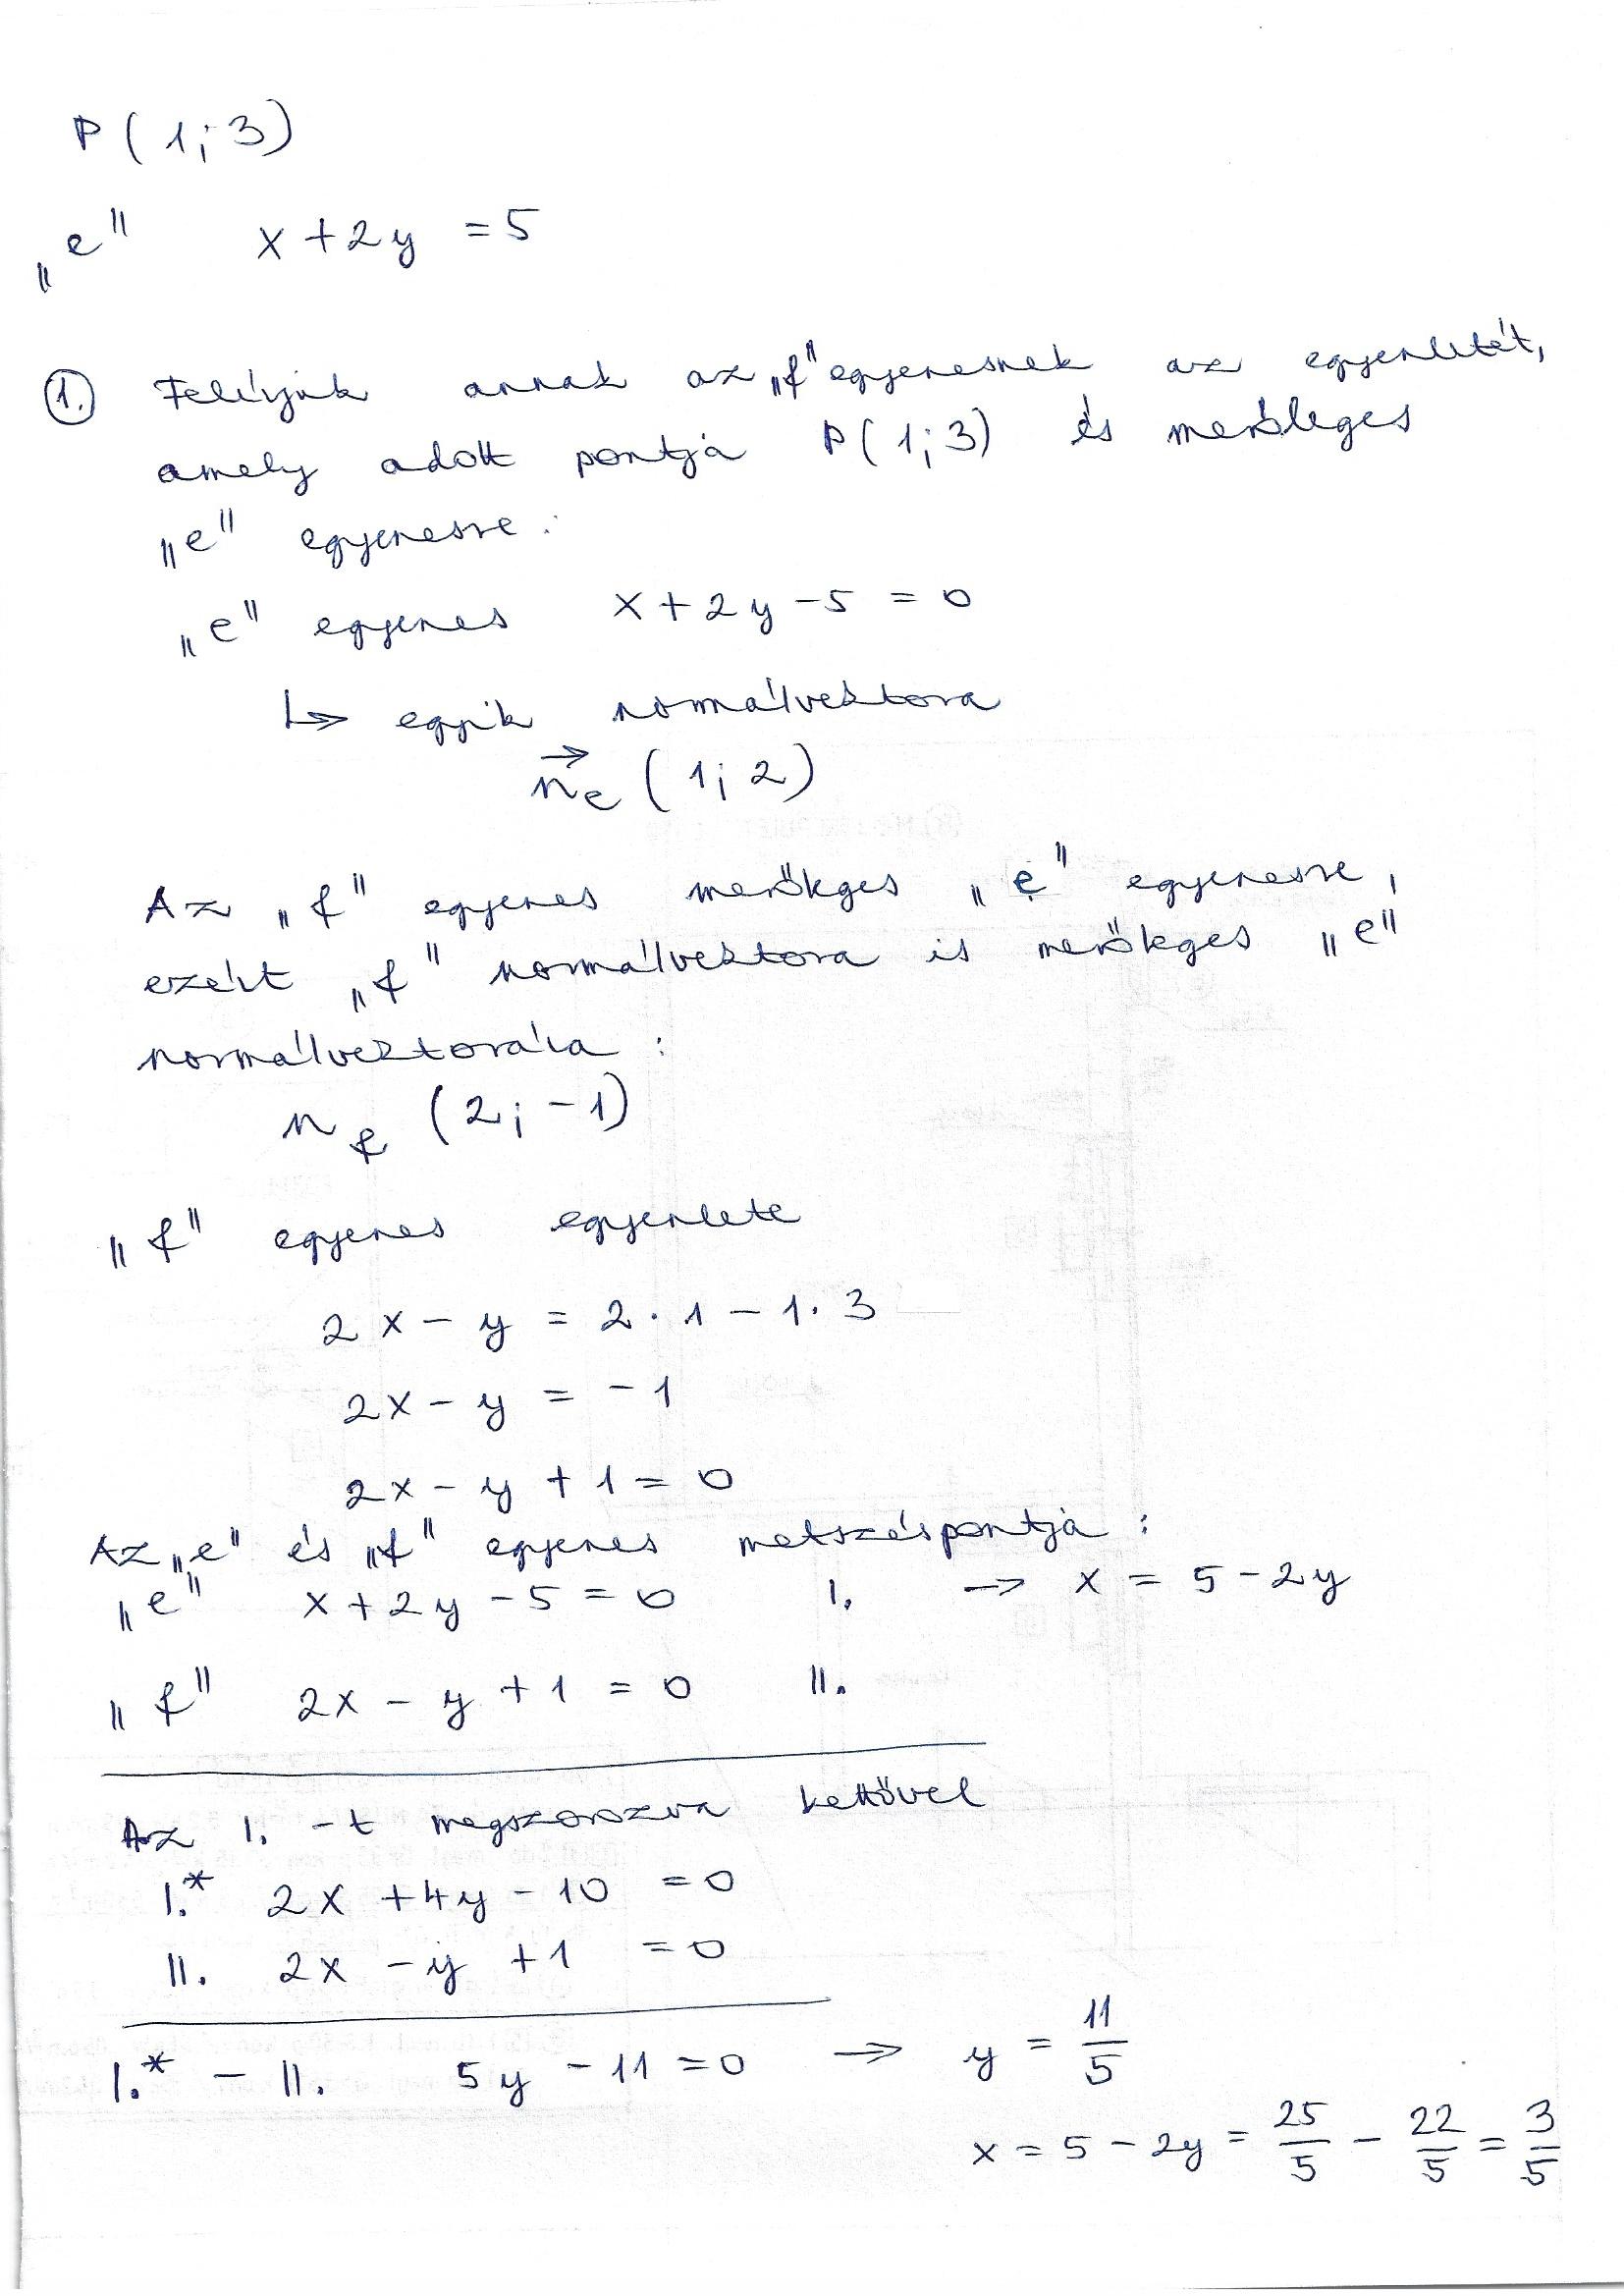 P(1;3)
„e" x+2y = 5
1. Felírjuk annak az „f" egyenesnek az egyenletét,
amely adott pontja P(1;3) és merőleges
„e" egyenesre:
„e" egyenes x+2y-5 = 0
↳ egyik normálvektora
n⃗e (1;2)
Az „f" egyenes merőleges „e" egyenesre,
ezért „f" normálvektora is merőleges „e"
normálvektorára:
nf (2;-1)
„f" egyenes egyenlete
2x - y = 2·1 - 1·3
2x - y = -1
2x - y + 1 = 0
Az „e" és „f" egyenes metszéspontja:
„e" x+2y-5 = 0 I. → x = 5-2y
„f" 2x - y + 1 = 0 II.
Az I. -t megszorozva kettővel
I.* 2x +4y - 10 = 0
II. 2x - y + 1 = 0
I.* - II. 5y - 11 = 0 → y = 11/5
x = 5 - 2y = 25/5 - 22/5 = 3/5